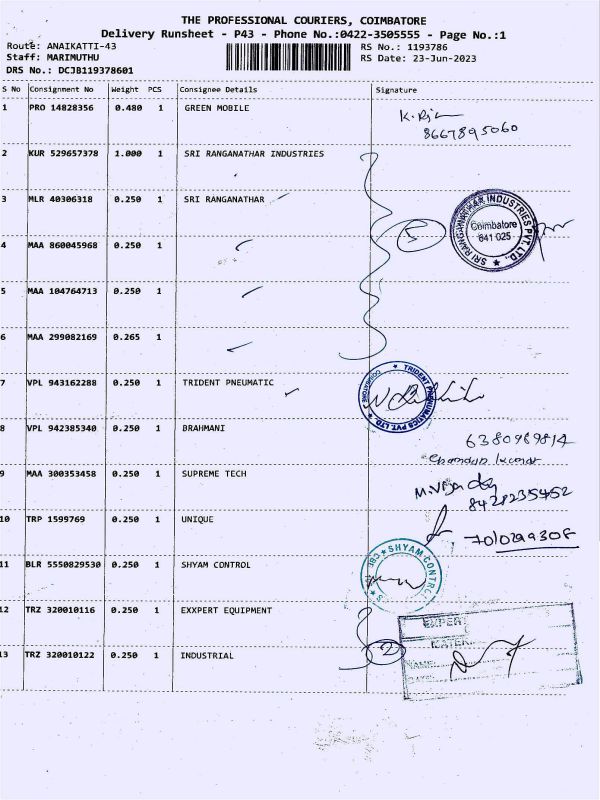 THE PROFESSIONAL COURIERS, COIMBATORE
Delivery Runsheet - P43 - Phone No.:0422-3505555 - Page No.:1
Route: ANAIKATTI-43 RS No.: 1193786
Staff: MARIMUTHU RS Date: 23-Jun-2023
DRS No.: DCJB119378601
S No Consignment No Weight PCS Consignee Details Signature
1 PRO 14828356 0.480 1 GREEN MOBILE
8667895060
2 KUR 529657378 1.000 1 SRI RANGANATHAR INDUSTRIES
3 MLR 40306318 0.250 1 SRI RANGANATHAR
5
SRI RANGANATHAR INDUSTRIES PVT. LTD.
Coimbatore
641 025
4 MAA 860045968 0.250 1
5 MAA 104764713 0.250 1
6 MAA 299082169 0.265 1
7 VPL 943162288 0.250 1 TRIDENT PNEUMATIC
TRIDENT PNEUMATICS PVT. LTD.
COIMBATORE
8 VPL 942385340 0.250 1 BRAHMANI
6380989814
9 MAA 300353458 0.250 1 SUPREME TECH
M.Vijay
8428235452
10 TRP 1599769 0.250 1 UNIQUE
11 BLR 5550829530 0.250 1 SHYAM CONTROL
SHYAM CONTROL
CBE
12 TRZ 320010116 0.250 1 EXXPERT EQUIPMENT
13 TRZ 320010122 0.250 1 INDUSTRIAL
2
NAME:
DATE: